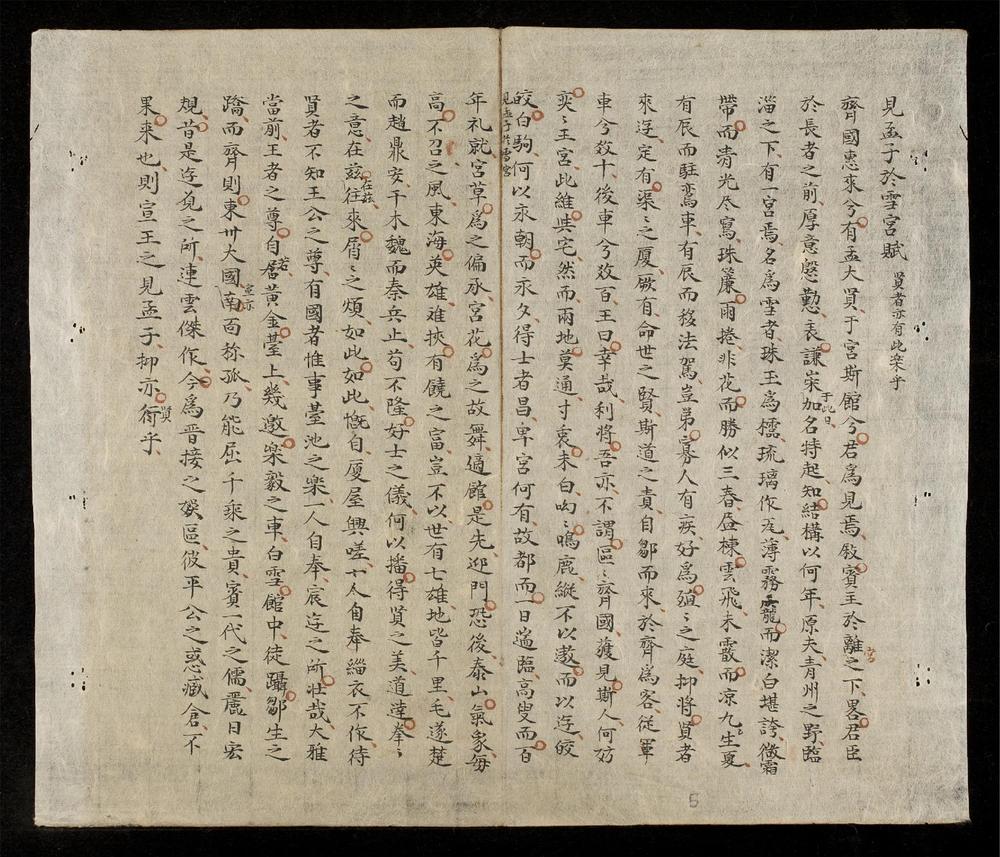 見孟子於雪宮賦 賢者亦有此楽乎
齊國惠來兮有孟大賢于宮斯館兮君爲見焉叙賓主於離之下畧君臣
於長者之前厚意慇懃衷謙宲加名特起知結構以何年原夫青州之野臨
淄之下有一宮焉名爲雪者珠玉爲檽琉璃作瓦薄霧籠而潔白堪誇微霜
帶而清光尽寫珠簾雨捲非花而勝似三春昼棟雲飛未霰而凉九生夏
有辰而駐鸞車有辰而移法駕豈弟寡人有疾好爲殖〻之庭抑將賢者
來迓定有渠〻之厦厥有命世之賢斯道之責自鄒而來於齊爲客從軍
車兮数十後車兮数百王曰幸哉利將吾亦不謂區〻齊國獲見斯人何妨
奕〻王宮此維㒷宅然而兩地莫通寸衷未白呦〻鳴鹿縱不以遨而以迓皎
皎白駒何以永朝而永夕得士者昌卑宮何有故都而一日遄臨高叟而百
見孟子於雪宮
年礼就宮草爲之偏承宮花爲之故舞適館是先迎門恐後泰山氣象每
高不召之風東海英雄难挾有饒之富豈不以世有七雄地皆千里毛遂楚
而趙鼎安干木魏而秦兵止苟不隆好士之儀何以播得賢之美道達拳〻
之意在兹往來屑〻之煩如此如此慨自厦屋興嗟十人自奉緇衣不作待
在兹
賢者不知王公之尊有國者惟事臺池之楽一人自奉宸迓之所壮哉大雅
當前王者之尊自居黄金臺上幾邀楽毅之車白雪館中徒躡鄒生之
蹻而齊則東卅大國南面称孤乃能屈千乘之貴賓一代之儒麗日宏
規昔是迓覓之所連雲傑作今爲晋接之娯區彼平公之惑臧倉不
果来也則宣王之見孟子抑亦術乎
賢
5